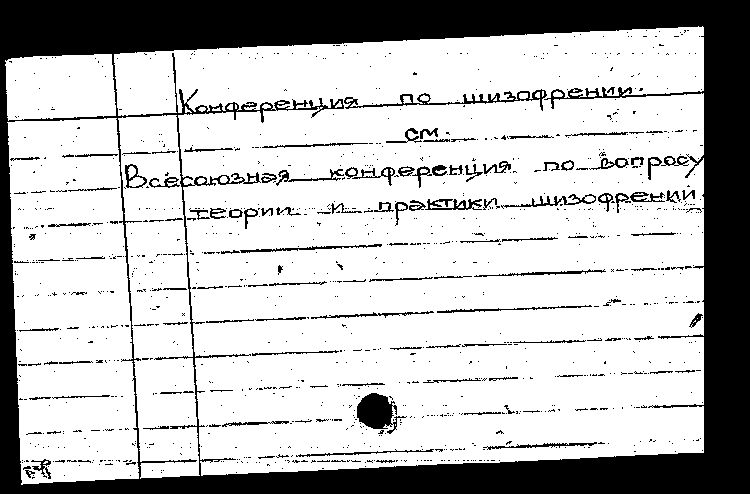 Конференция по шизофрении.
см.
Всесоюзная конференция по вопросу
теории и практики шизофрении.